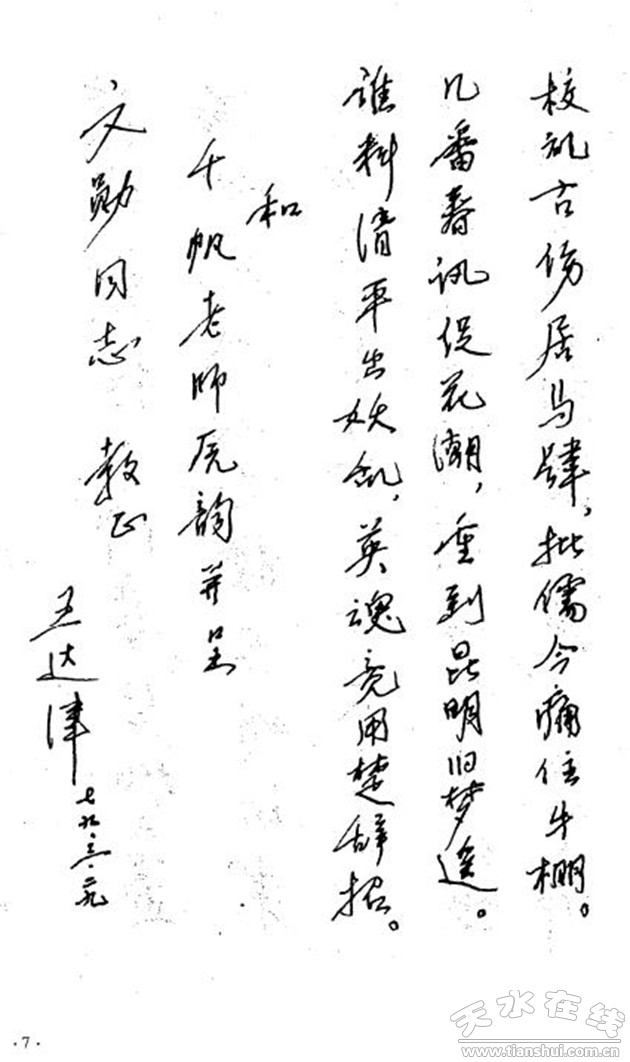 校乱古伤居马肆，批儒今痛住牛棚。
几番春讯促花潮，重到昆明旧梦遥。
谁料清平出妖乱，英魂竟用楚辞招。
和
千帆老师原韵并呈
文勋同志 教正
王达津
七九·三·二九
·7·
天水在线
www.tianshui.com.cn